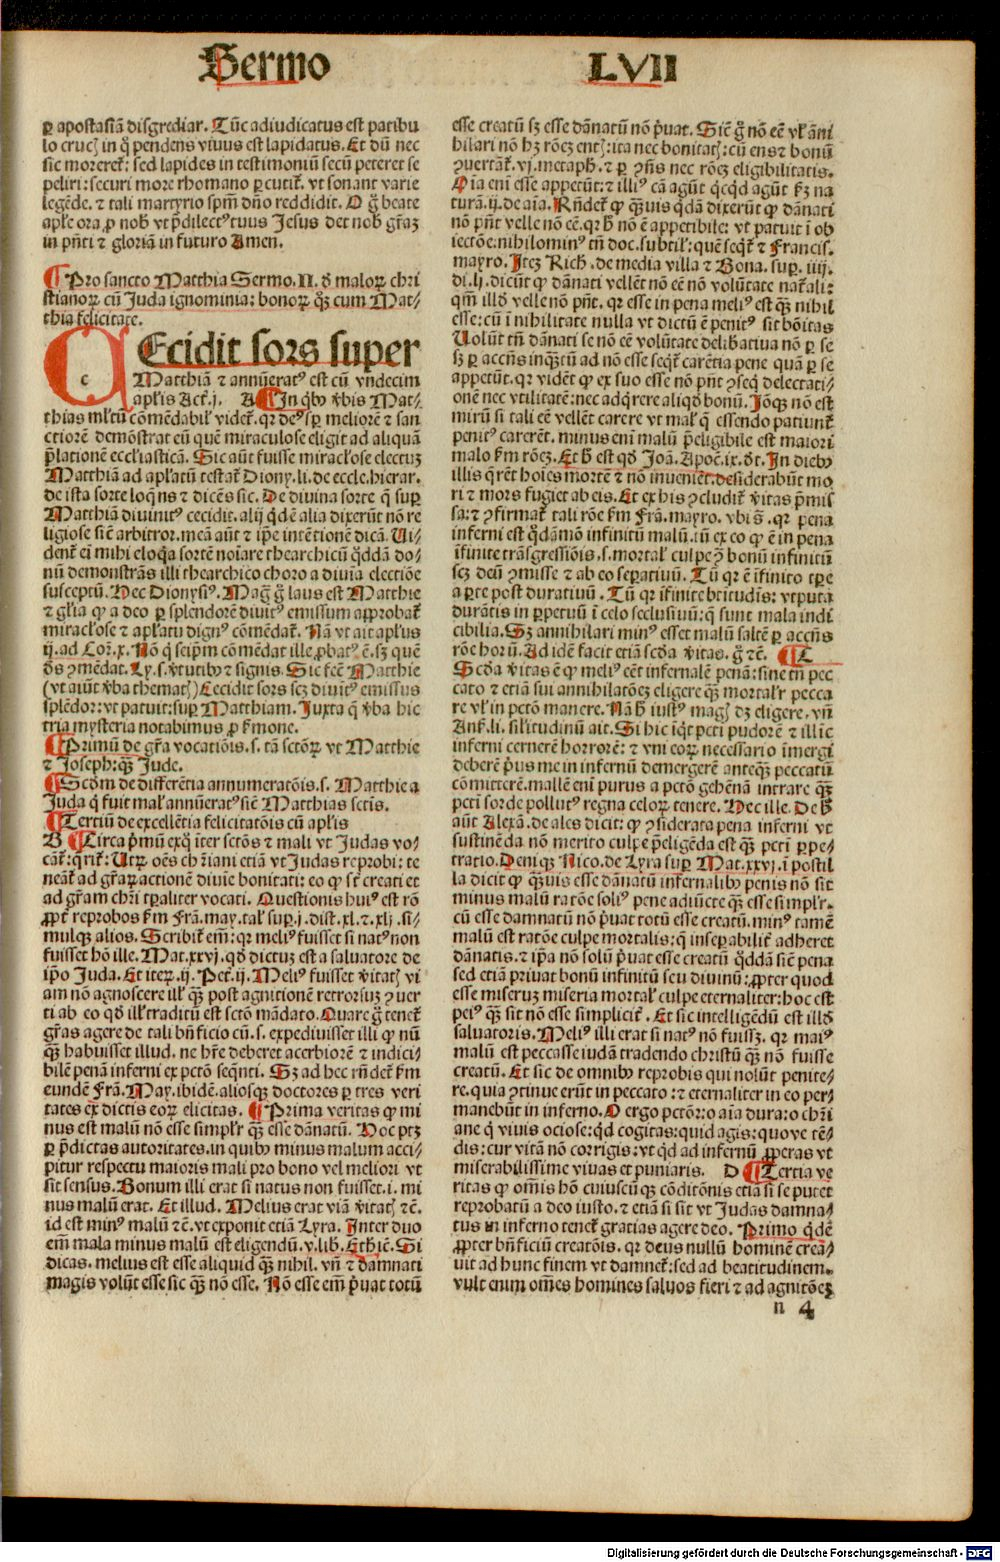 Sermo LVII
ꝑ apostasiā disgrediar. Tūc adiudicatus est patibu
lo cruc in q̄ pendens viuus est lapidatus. Et dū nec
sic moreret᷑: sed lapides in testimoniū secū peteret se
peliri: securi more rhomano ꝑcutit᷑. vt sonant varie
legēde. ⁊ tali martyrio spm̄ dn̄o reddidit. O g̊ beate
aplē ora ꝓ nob vt p̄dilectꝰ tuus Jesus det nob gr̄az
in pn̄ti ⁊ gloriā in futuro Amen.
¶ Pro sancto Matthia Sermo. II. d̓ maloꝝ chri
stianoꝝ cū Juda ignominia: bonoꝝ q̄ꝫ cum Mat-
thia felicitate.
CEcidit sors super
Matthiā ⁊ annūeratꝰ est cū vndecim
aplis Act. j. A ¶ In qͥbꝰ v̓bis Mat-
thias ml̓tū cōmēdabil̓ videt᷑. qr deꝰ sꝑ meliorē ⁊ san
ctiorē demōstrat eū quē miraculose eligit ad aliquā
p̄lationē eccl̓iasticā. Sic aūt fuisse miracl̓ose electuꝫ
Matthiā ad apl̓atū testat᷑ Diony. li. de eccle. hierar.
de ista sorte loqn̄s ⁊ dicēs sic. De diuina sorte q̄ suꝑ
Matthiā diuinitꝰ cecidit. alij qͥdē alia dixerūt nō re
ligiose sic̄ arbitror. meā aūt ⁊ ip̄e intētionē dicā. Ui-
dent᷑ ei mihi eloqͥa sortē noīare thearchicū qͦddā do-
nū demonstrās illi thearchico choro a diuīa electiōe
susceptū. Hec Dionysiꝰ. Magͣ g̊ laus est Matthie
⁊ gl̓ia qꝙ a deo ꝑ splendorē diuitꝰ emissum approbat᷑
miracl̓ose ⁊ apl̓atu dignꝰ cōmēdat᷑. Nā vt ait apl̓us
ij. ad Cor. x. Nō q̄ seip̄m cōmēdat ille ꝓbatꝰ ē. sꝫ quē
deꝰ ꝯmēdat. Ly. s. v̓tutibꝰ ⁊ signis. Sic fc̄m Matthie
(vt aiūt v̓ba themat) Cecidit sors scꝫ diuitꝰ emissus
splēdor: vt patuit: suꝑ Matthiam. Juxta q̄ v̓ba hic
tria mysteria notabimus ꝓ sermone.
¶ Primū de gr̄a vocatiōis. s. tā sctōꝝ vt Matthie
⁊ Joseph: q̄ꝫ Jude.
¶ Scd̓m de differētia annumeratōis. s. Matthie a
Juda q̄ fuit mal̓ annūeratꝰ sic̄ Matthias sctis.
¶ Tertiū de excellētia felicitatōis cū apl̓is
B ¶ Circa p̄mū exqͦ iter sctōs ⁊ mali vt Judas vo-
cāt᷑: qͥrit᷑: Utꝝ oēs chr̄iani etiā vt Judas reprobi: te
neāt᷑ ad gr̄aꝝ actionē diuīe bonitati: eo qꝙ st̄ creati et
ad gr̄am chr̄i tꝑaliter vocati. Questionis huiꝰ est rō
ꝓpt̓ reprobos s̄m Frā. may. tal̓ suꝑ. j. dist. xl. ⁊. xlj. si-
mulqꝫ alios. Scribit᷑ em̄: qr meliꝰ fuisset si natꝰ non
fuisset hō ille. Mat. xxvj. qd̓ dictuꝫ est a saluatore de
ip̄o Juda. Et iteꝝ. ij. Pet. ij. Meliꝰ fuisset v̓itat vi
am nō agnoscere ill̓ q̄ꝫ post agnitionē retrorsuꝫ ꝯuer
ti ab eo qd̓ ill̓ traditū est sctō mādato. Quare g̊ tenet᷑
gr̄as agere de tali bn̄ficio cū. s. expediuisset illi qꝙ nū
q̄ꝫ habuisset illud. ne hr̄e deberet acerbiorē ⁊ indici-
bilē penā inferni ex pctō seqn̄ti. Sꝫ ad hec rn̄det᷑ s̄m
eundē Frā. May. ibidē. aliosqꝫ doctores ꝑ tres veri
tates ex dictis eoꝝ elicitas. ¶ Prima veritas qꝙ mi
nus est malū nō esse simpl̓r q̄ꝫ esse dānatū. Hoc ptꝫ
ꝑ p̄dictas autoritates. in quibꝰ minus malum acci-
pitur respectu maioris mali pro bono vel meliori vt
sit sensus. Bonum illi erat si natus non fuisset. i. mi
nus malū erat. Et illud. Melius erat viā v̓itat ⁊c̄.
id est minꝰ malū ⁊c̄. vt exponit etiā Lyra. Inter duo
em̄ mala minus malū est eligendū. v. lib. Ethic̄. Si
dicas. melius est esse aliquid q̄ꝫ nihil. vn̄ ⁊ damnati
magis volūt esse sic q̄ꝫ nō esse. Nō esse em̄ p̄uat totū
esse creatū sꝫ esse dānatū nō p̄uat. Sic̄ g̊ nō eē vl̓ āni
hilari nō hꝫ rōeꝫ ent: ita nec bonitat: cū ens ⁊ bonū
ꝯuertāt᷑. vj. metaph̄. ⁊ ꝑ ꝯn̄s nec rōeꝫ eligibilitatis.
Oīa enī esse appetūt: ⁊ illiꝰ cā agūt qͥcqd̓ agūt s̄ꝫ na
turā. ij. de aīa. Rn̄det᷑ qꝙ q̄ꝫuis qͥdā dixerūt qꝙ dānati
nō pn̄t velle nō eē. qr h̓ nō ē appetibile: vt patuit ī ob
iectōe: nihilominꝰ tn̄ doc. subtil̓: quē seqͥt᷑ ⁊ Francis.
mayro. Iteꝫ Rich̄. de media villa ⁊ Bona. suꝑ. iiij.
di. l. dicūt qꝙ dānati vellēt nō eē nō volūtate nat᷑ali:
qm̄ illd̓ velle nō pn̄t. qr esse in pena meliꝰ est q̄ꝫ nihil
esse: cū ī nihilitate nulla vt dictū ē penitꝰ sit bōitas
Uolūt tn̄ dānati se nō eē volūtate delibatiua nō ꝑ se
sꝫ ꝑ accn̄s inq̄ꝫtū ad nō esse seqͥt᷑ carētia pene quā ꝑ se
appetūt. qr vidēt qꝙ ex suo esse nō pn̄t ꝯseq̄ delectati-
onē nec vtilitatē: nec adqͥrere aliqd̓ bonū. Iōqꝫ nō est
mirū si tali eē vellēt carere vt mal̓ q̄ essendo patiunt᷑
penitꝰ carerēt. minus enī malū p̄eligibile est maiori
malo s̄m rōeꝫ. Et h̓ est qd̓ Joā. Apoc̄. ix. dt̄. In diebꝰ
illis qͣrēt hoīes mortē ⁊ nō inueniēt. desiderabūt mo
ri ⁊ mors fugiet ab eis. Et ex his ꝯcludit᷑ v̓itas p̄mis
sa: ⁊ ꝯfirmat᷑ tali rōe s̄m Frā. mayro. vbi s̄. qr pena
inferni est qͦdāmō infinitū malū. tū ex eo qꝙ ē in pena
īfinite trāsgressiōis. s. mortal̓ culpe ꝯ̄ bonū infinitū
scꝫ deū ꝯmisse ⁊ ab eo seꝑatiuū. Tū qr ē īfinito tꝑe
a ꝑte post duratiuū. Tū qr īfinite btitudīs: vtputa
durātis in ꝑpetuū ī celo seclusiuū: q̄ sunt mala indi
cibilia. Sꝫ annihilari minꝰ esset malū saltē ꝑ accn̄s
rōe hoꝝ. Ad idē facit etiā scd̓a v̓itas. g̊ ⁊c̄. ¶ C
Scd̓a v̓itas ē qꝙ meliꝰ eēt infernalē penā: sine tn̄ pec
cato ⁊ etiā sui annihilatōeꝫ eligere q̄ꝫ mortal̓r pecca
re vl̓ in pctō manere. Nā h̓ iustꝰ magͥ dꝫ eligere. vn̄
Ans̄. li. sil̓itudinū ait. Si hic iqͥt pcti pudorē ⁊ illic
inferni cernerē horrorē: ⁊ vni eoꝝ necessario īmergi
deberē p̄us me in infernū demergerē anteq̄ꝫ peccatū
cōmitterē. mallē enī purus a pctō gehēnā intrare q̄ꝫ
pcti sorde pollutꝰ regna celoꝝ tenere. Hec ille. De h̓
aūt Alexā. de ales dicit: qꝙ ꝯsiderata pena inferni vt
sustinēda nō merito culpe p̄eligēda est q̄ꝫ pcti ꝑpe-
tratio. Deniqꝫ Nico. de Lyra suꝑ Mat. xxvj. ī postil
la dicit qꝙ q̄ꝫuis esse dānatū infernalibꝰ penis nō sit
minus malū ratōe soliꝰ pene adiūcte q̄ꝫ esse simpl̓r.
cū esse damnatū nō p̄uat totū esse creatū. minꝰ tamē
malū est ratōe culpe mortalis: q̄ inseꝑabilit᷑ adheret
dānatis. ⁊ ip̄a nō solū p̄uat esse creatū qͦddā sic̄ pena
sed etiā priuat bonū infinitū seu diuinū: ꝓpter quod
esse miseruꝫ miseria mortal̓ culpe eternaliter: hoc est
peiꝰ q̄ꝫ sit nō esse simplicit᷑. Et sic intelligēdū est illd̓
saluatoris. Meliꝰ illi erat si natꝰ nō fuissꝫ. qr maiꝰ
malū est peccasse iudā tradendo christū q̄ꝫ nō fuisse
creatū. Et sic de omnibꝰ reprobis qui nolūt penite-
re. quia ꝯtinue erūt in peccato: ⁊ eternaliter in eo per-
manebūt in inferno. O ergo pctōr: o aīa dura: o chr̄i
ane q̄ viuis ociose: qͥd cogitas: quid agis: quo ve tē-
dis: cur vitā nō corrigis: vt qͥd ad infernū ꝓperas vt
miserabilissime viuas et puniaris. D ¶ Tertia ve
ritas qꝙ om̄is hō cuiuscūqꝫ cōditōnis etiā si se putet
reprobatū a deo iusto. ⁊ etiā si sit vt Judas damna-
tus in inferno tenet᷑ gratias agere deo. Primo qͥdē
ꝓpter bn̄ficiū creatōis. qr deus nullū hominē crea-
uit ad hunc finem vt damnet᷑: sed ad beatitudinem.
vult enim om̄es homines saluos fieri ⁊ ad agnitōeꝫ
n 4
Digitalisierung gefördert durch die Deutsche Forschungsgemeinschaft - DFG